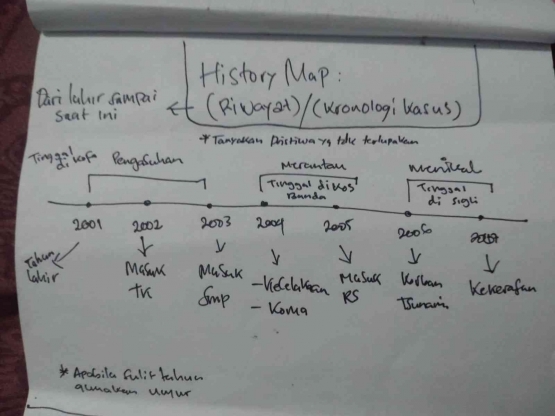 History Map:
(Riwayat)/(Kronologi kasus)
Dari lahir sampai
saat ini
* Tanyakan Peristiwa yg tdk terlupakan
Tinggal
di
Pengasuhan
Merantau
Tinggal di kos
menikah
Tinggal
di sigli
2001 2002 2003 2004 2005 2006
Tahun
lahir
Masuk
TK
Masuk
Smp
- Kecelakaan
- Koma
Masuk
RS
Korban
Tsunami
Kekerasan
* Apabila sulit tahun
gunakan umur